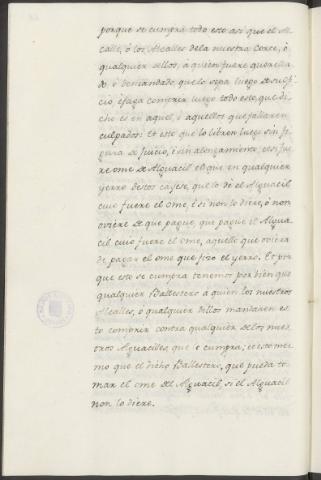 porque se cumpra todo esto asi que el Al
calle, ò los Alcalles dela nuestra Corte, ò
qualquier dellos, à quien fuere querella
do, ò demandado que lo sepa luego de su ofi
cio, è faga complir luego todo esto, que di
cho es en aquel, ò aquellos que fallaren
culpados: Et esto que lo libren luego sin fi
gura de Juicio, è sin alongamiento, et si fue
re ome de Alguacil el que en qualquier
yerro destos cayere, que lo dè el Alguacil
cuio fuere el ome, è si non lo diere, ò non
oviere de que pague, que pague el Algua
cil cuio fuere el ome, aquello que oviera
de pagar el ome que fizo el yerro. Et por
que esto se cumpla tenemos por bien que
qualquier Ballestero à quien los nuestros
Alcalles, ò qualquier dellos mandaren es
to complir contra qualquier dellos nues
tros Alguaciles, que lo cumpla; et esto mes
mo que el dicho Ballestero, que pueda to
mar el ome del Alguacil, si el Alguacil
non lo diere.